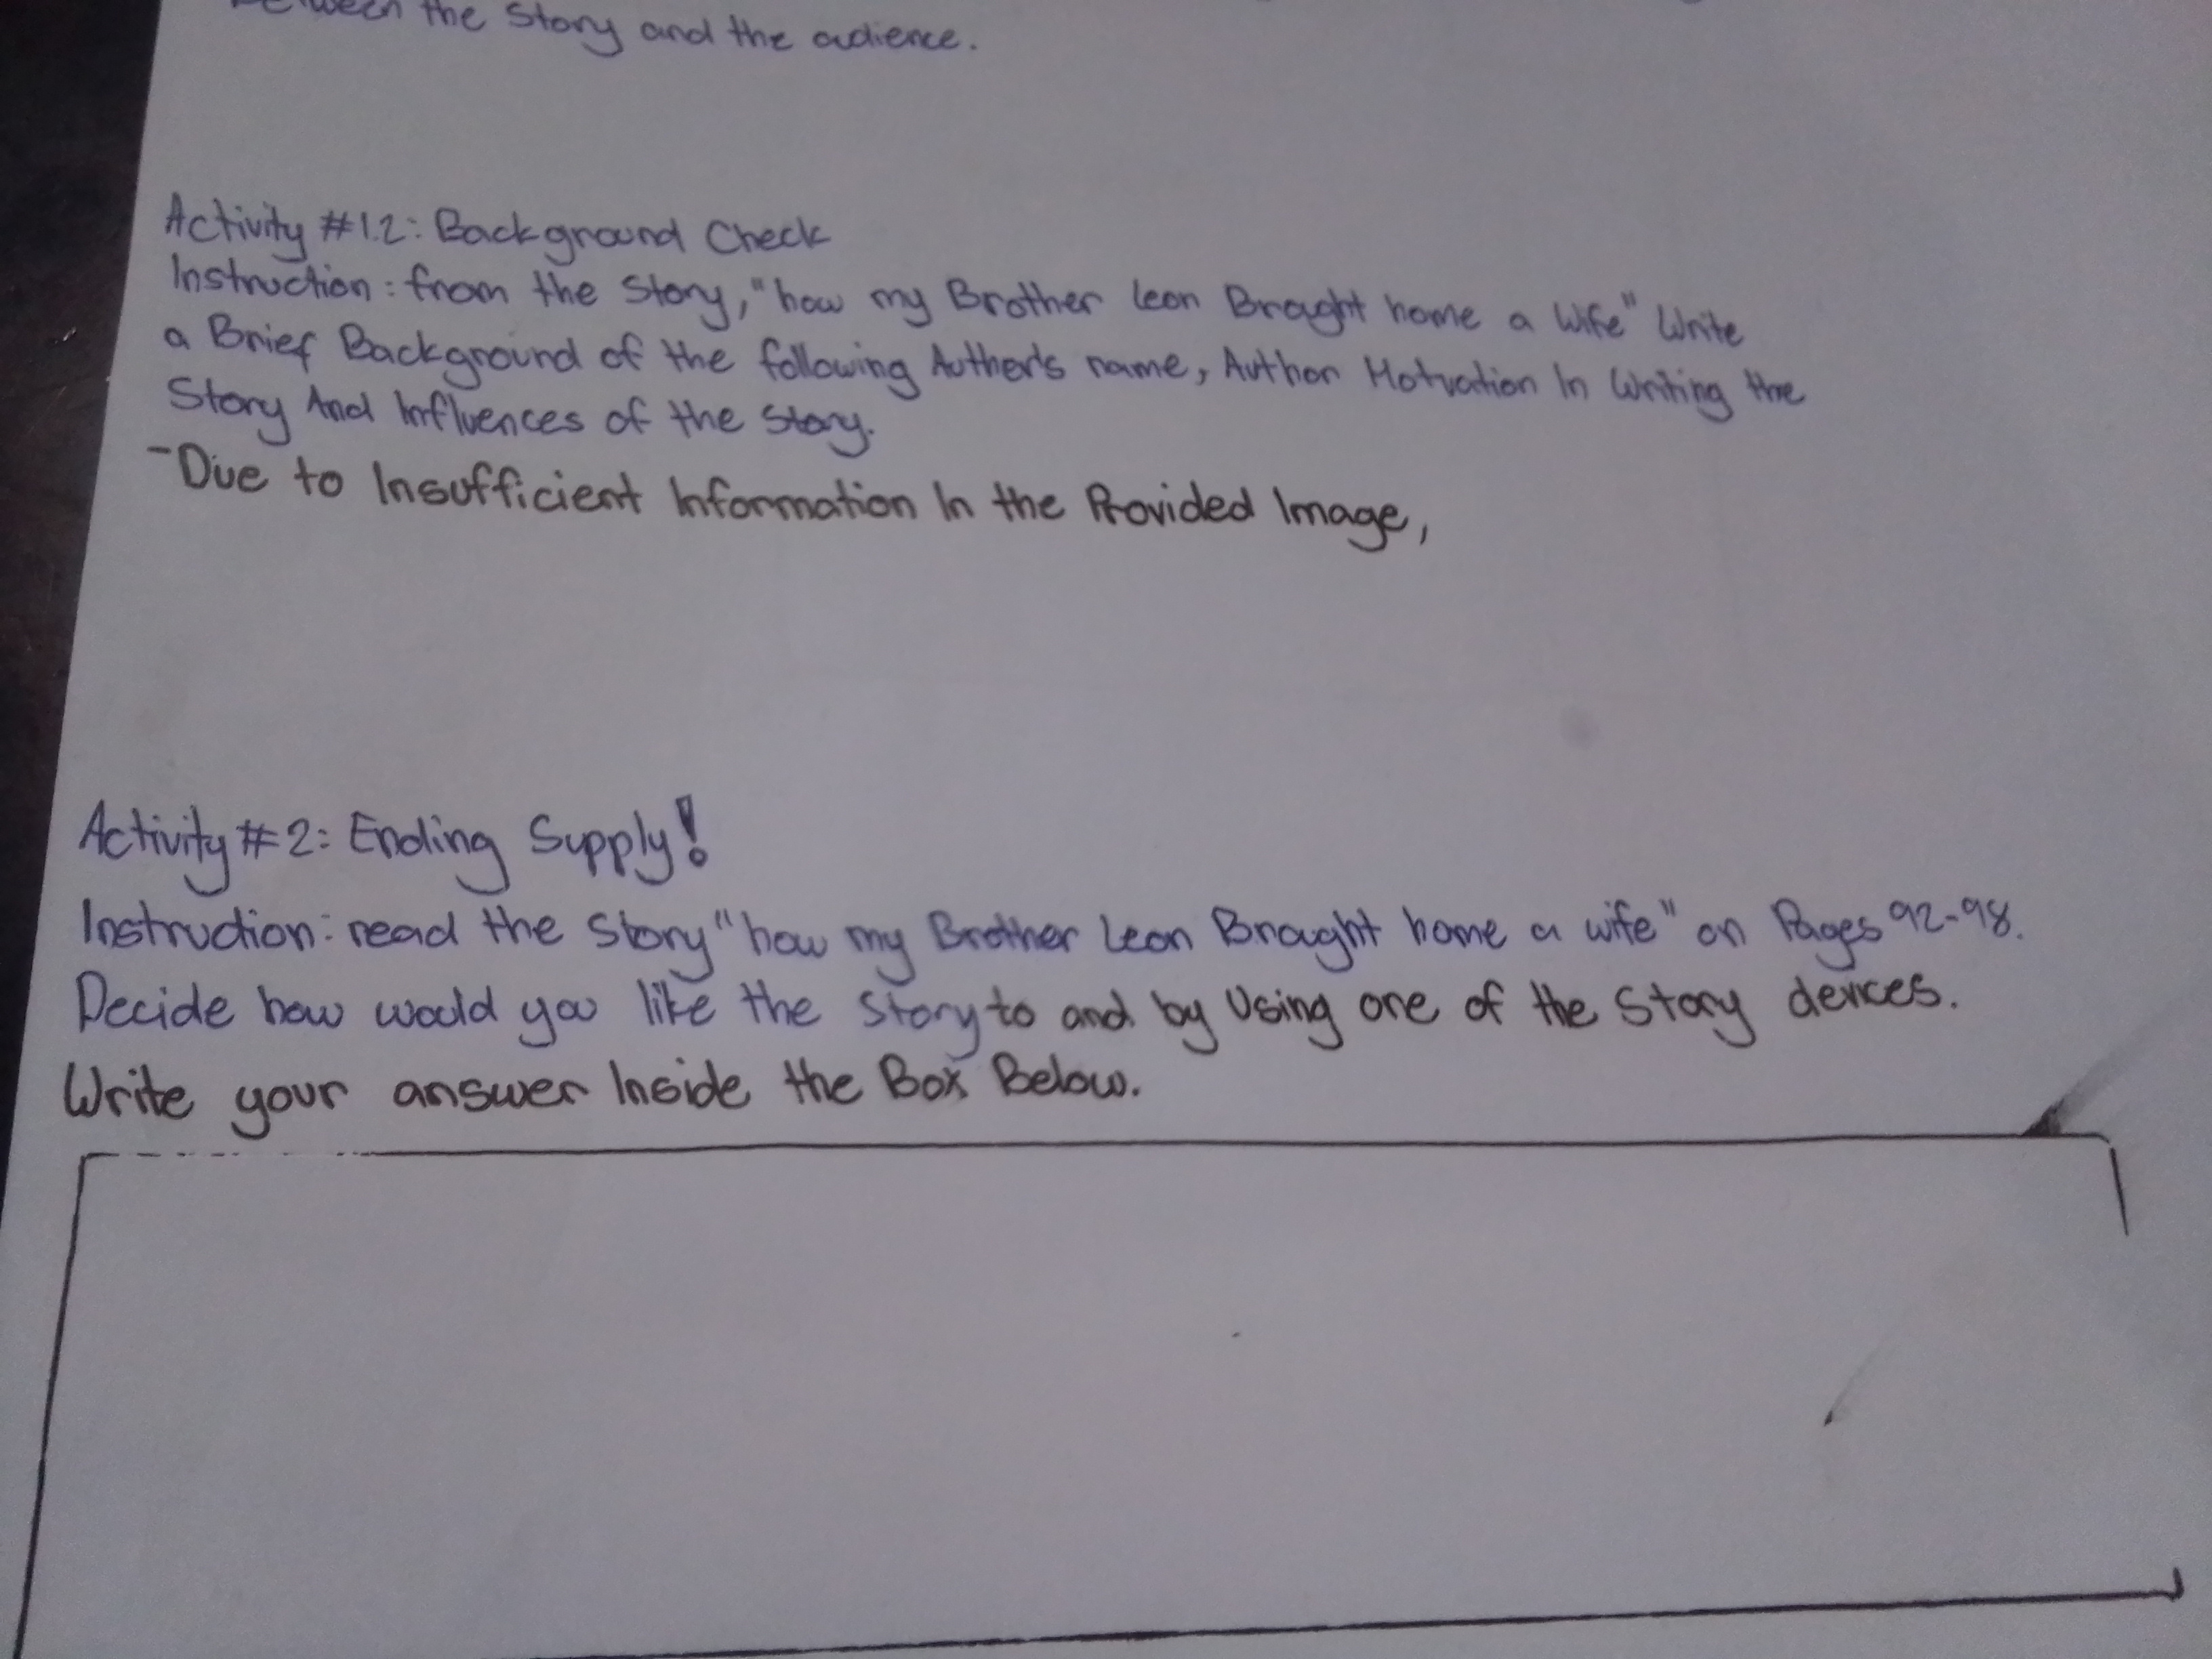 between the Story and the audience.
Activity #1.2: Background Check
Instruction: from the Story, "how my Brother leon Brought home a Wife" Write
a Brief Background of the following Author's name, Author Motvation In Writing the
Story And Influences of the Story.
-Due to Insufficient Information In the Provided Image,
Activity #2: Ending Supply!
Instruction: read the Story "how my Brother Leon Brought home a wife" on Pages 92-98.
Decide how would you like the Story to and by Using one of the Story devices.
Write your answer Inside the Box Below.